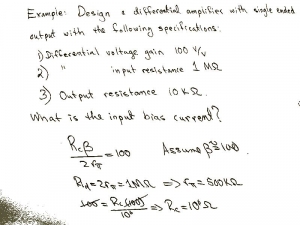 Example: Design a differential amplifier with single ended
output with the following specifications:
1) Differential voltage gain 100 V/V
2) " input resistance 1 MΩ
3) Output resistance 10 KΩ.
What is the input bias current?
Rcβ / 2rπ = 100 Assume β ≅ 100
Rid = 2rπ = 1MΩ => rπ = 500KΩ
100 = Rc(100) / 10⁶ => Rc = 10⁶Ω